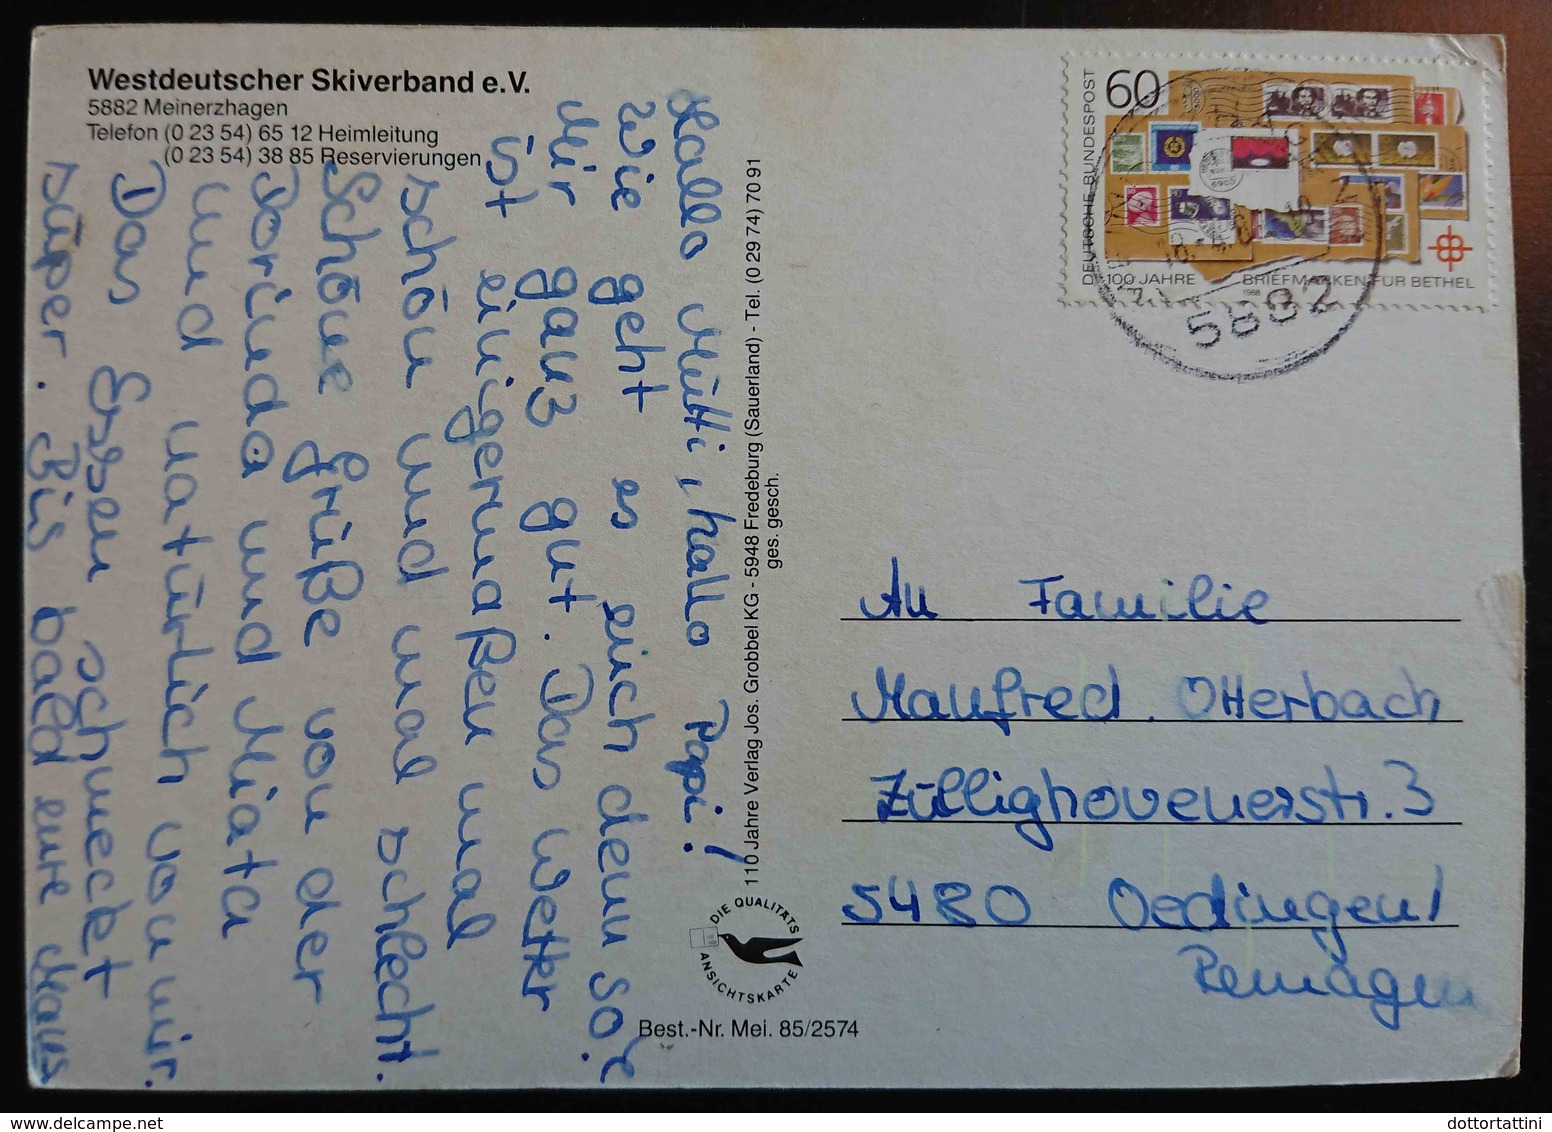 Westdeutscher Skiverband e.V.
5882 Meinerzhagen
Telefon (0 23 54) 65 12 Heimleitung
(0 23 54) 38 85 Reservierungen
Hallo Mutti, hallo Papi!
Wie geht es euch denn so?
Mir ganz gut. Das Wetter
ist einigermaßen mal
schön und mal schlecht.
Schöne Grüße von der
Dorinda und Miata
und natürlich von mir.
Das Essen schmeckt
super. Bis bald eure Maus
110 Jahre Verlag Jos. Grobbel KG - 5948 Fredeburg (Sauerland) - Tel. (0 29 74) 70 91
ges. gesch.
DIE QUALITÄTS
ANSICHTSKARTE
Best.-Nr. Mei. 85/2574
60
DEUTSCHE BUNDESPOST
100 JAHRE BRIEFMARKEN FÜR BETHEL
1988
5882
An Familie
Manfred Otterbach
Züllighovenerstr. 3
5480 Oedingen/
Remagen
dottortattini